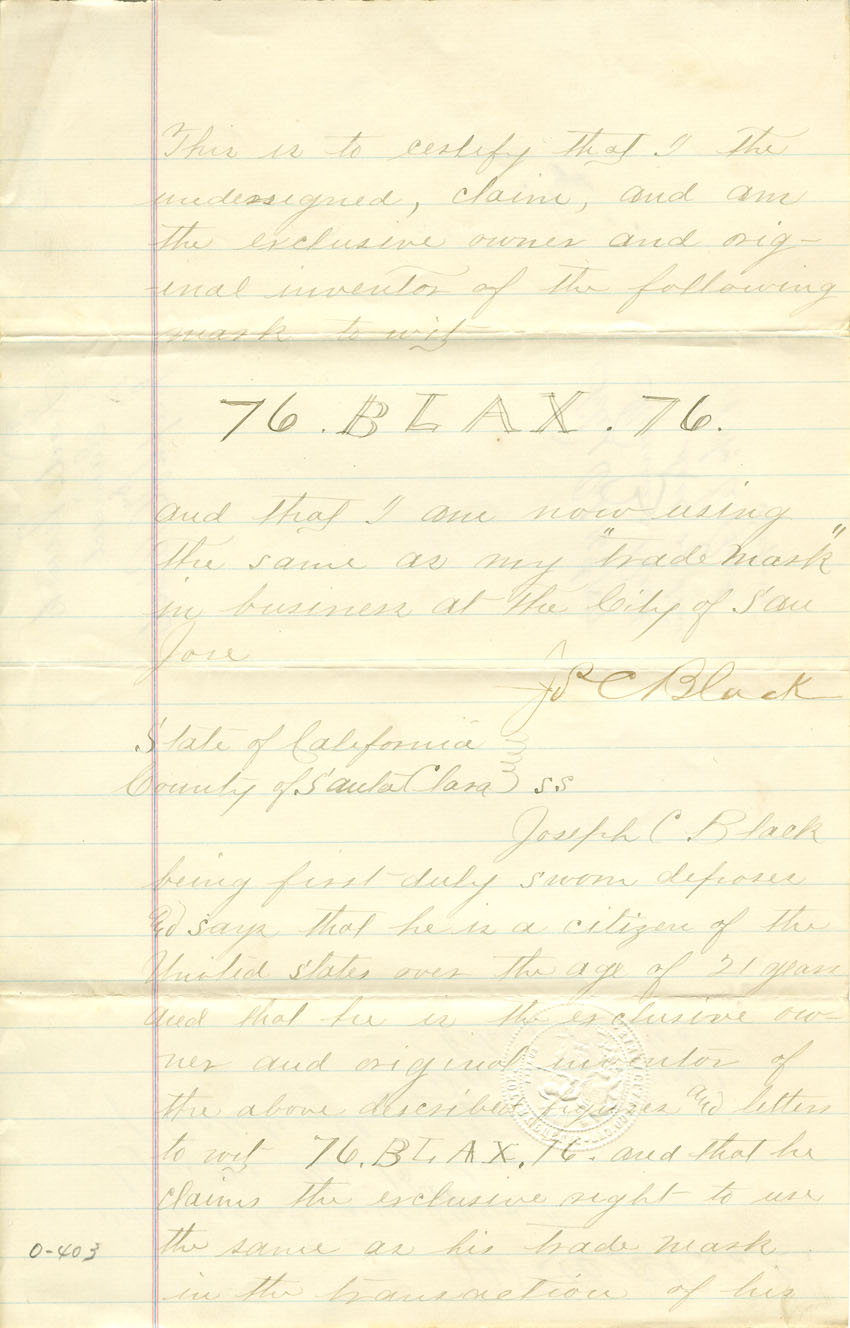 This is to certify that I the
undersigned, claim, and am
the exclusive owner and orig-
inal inventor of the following
mark to wit
76. BLAX. 76.
and that I am now using
the same as my "trade mark"
in business at the City of San
Jose
Jos C Black
State of California
County of Santa Clara } ss
Joseph C Black
being first duly sworn deposes
and says that he is a citizen of the
United States over the age of 21 years
and that he is the exclusive ow-
ner and original inventor of
the above described figures and letters
to wit 76. BLAX. 76. and that he
claims the exclusive right to use
the same as his trade mark
in the transaction of his
0-403